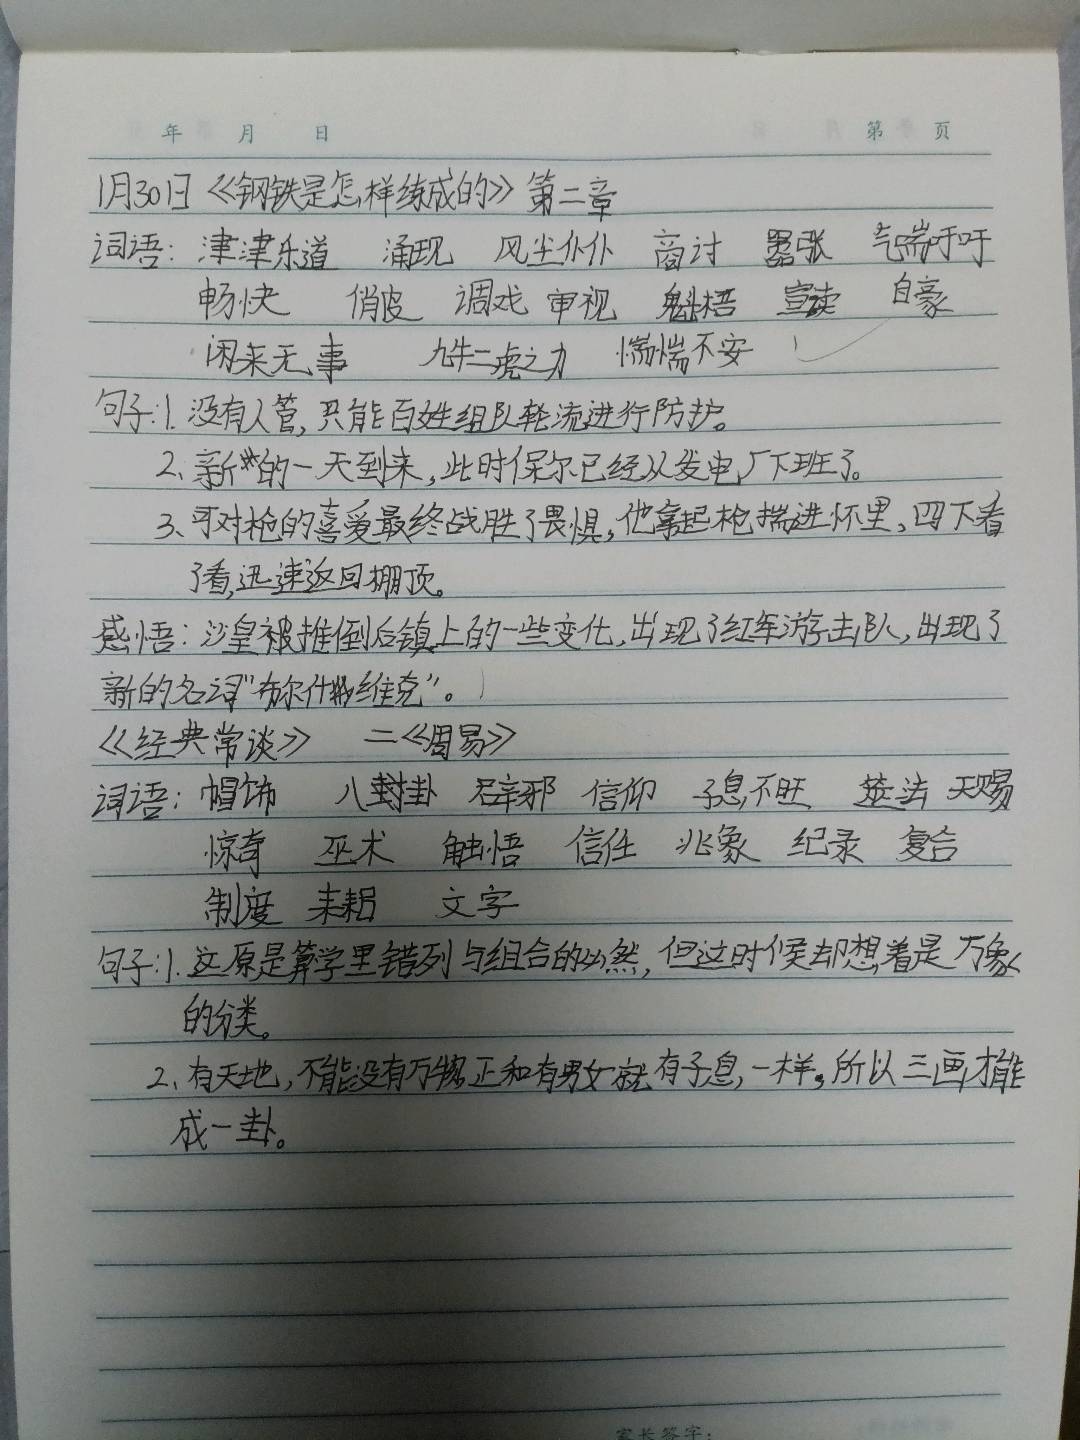 年 月 日 第 页
1月30日《钢铁是怎样练成的》第二章
词语：津津乐道 涌现 风尘仆仆 商讨 嚣张 气喘吁吁
畅快 俏皮 调戏 审视 魁梧 宣读 自豪
闲来无事 九牛二虎之力 惴惴不安
句子：1.没有人管，只能百姓组队轮流进行防护。
2、新的一天到来，此时保尔已经从发电厂下班了。
3、可对枪的喜爱最终战胜了畏惧，他拿起枪揣进怀里，四下看
了看，迅速返回棚顶。
感悟：沙皇被推倒后镇上的一些变化，出现了红军游击队，出现了
新的名词“布尔什维克”。
《经典常谈》 二《周易》
词语：帽饰 八卦 辟邪 信仰 子息不旺 筮法 天赐
惊奇 巫术 触悟 信任 兆象 纪录 复合
制度 耒耜 文字
句子：1.这原是算学里错列与组合的必然，但这时候却想着是万象
的分类。
2、有天地，不能没有万物正和有男女就有子息，一样。所以三画才能
成一卦。
家长签字：